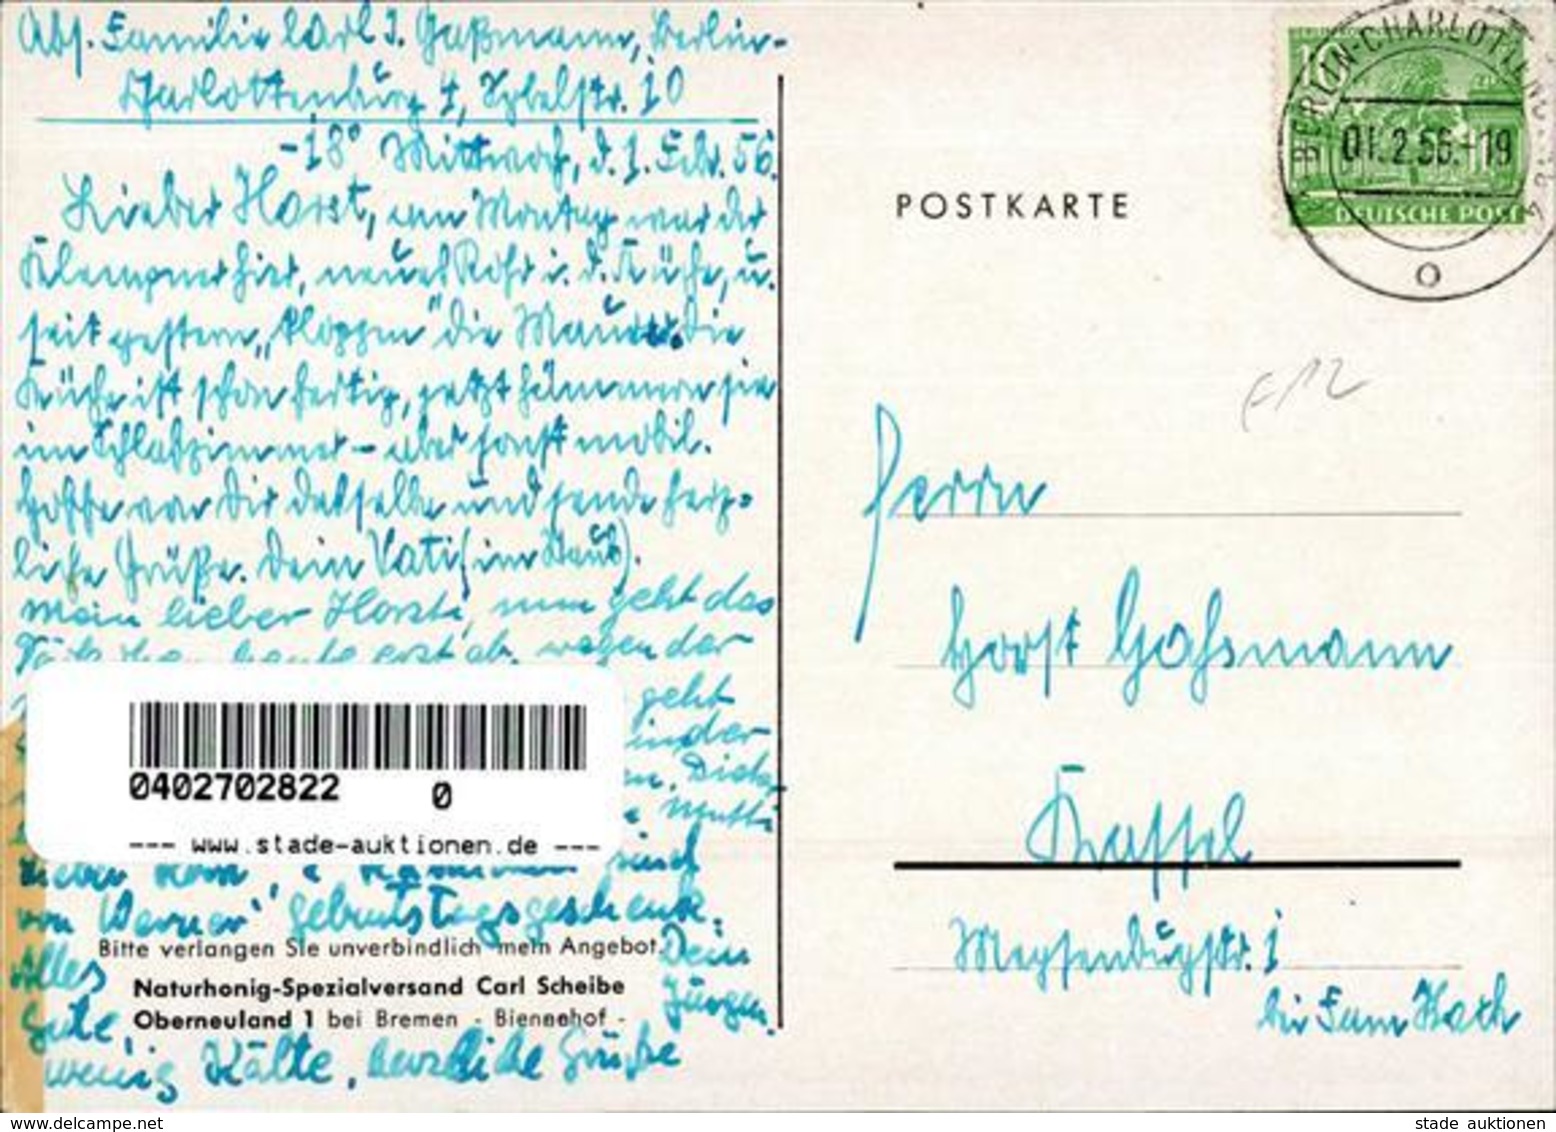 Abs. Familie Carl J. Gaßmann, Berlin-
Charlottenburg 4, Sybelstr. 10
-18° Mittwoch, d. 1. Febr. 56.
Lieber Horst, am Montag war der
Klempner hier, neues Rohr i. d. Küche, u.
seit gestern „kloppen" die Maurer. Die
Küche ist schon fertig, jetzt hämmern sie
im Schlafzimmer – aber sonst mobil.
Hoffe von Dir dasselbe und sende herz-
liche Grüße. Dein Vati (im Staub).
Mein lieber Horst, nun geht das
heute erst ab, wegen der
geht
in der
Mutti
sind
von Werner Geburtstagsgeschenk.
Bitte verlangen Sie unverbindlich mein Angebot.
Alles Dein
Naturhonig-Spezialversand Carl Scheibe
Gute, Jürgen.
Oberneuland 1 bei Bremen - Bienenhof -
wenig Kälte, herzliche Grüße
0402702822 0
--- www.stade-auktionen.de ---
POSTKARTE
BERLIN-CHARLOTTENBURG 4
01.2.56.-19
10
DEUTSCHE POST
F12
Herrn
Horst Gaßmann
Kassel
Meysenbugstr. 1
bei Fam. Koch
www.delcampe.net
stade auktionen